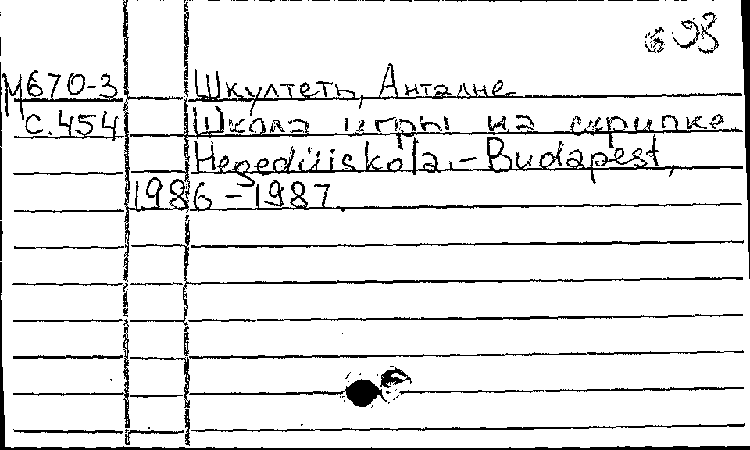 693
М670-3 Шкултеть, Анталне
с.454 Школа игры на скрипке
Hegedüiskola. - Budapest,
1986-1987.